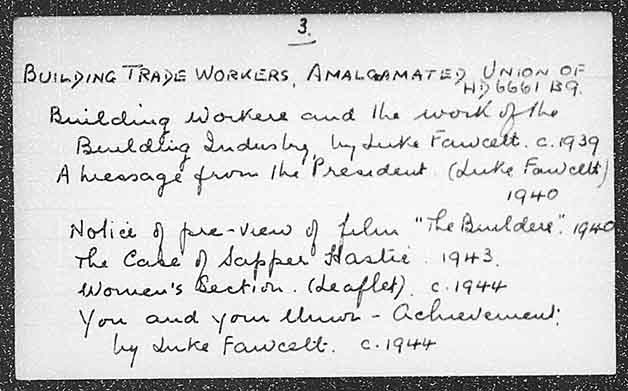 3.
BUILDING TRADE WORKERS, AMALGAMATED UNION OF
HD 6661 B9.
Building Workers and the work of the
Building Industry, by Luke Fawcett. c.1939
A message from the President. (Luke Fawcett)
1940
Notice of pre-view of film "The Builders". 1940
The Case of Sapper Hastie. 1943.
Women's Section. (Leaflet). c.1944
You and your Union - Achievement.
by Luke Fawcett. c.1944